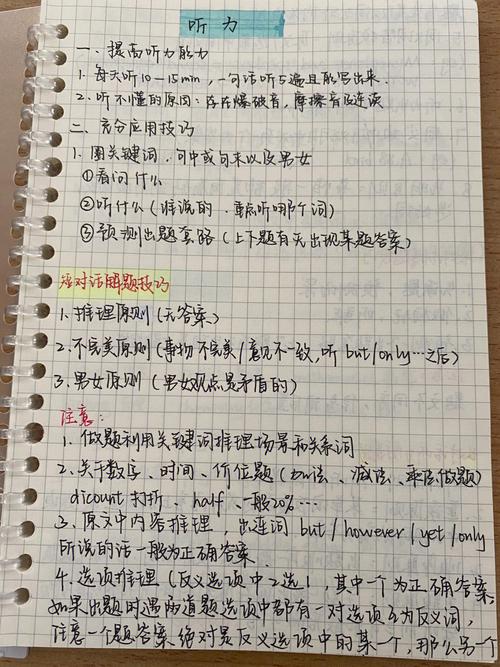 听力
一、提高听力能力
1. 每天听10-15min,一句话听5遍且能写出来.
2. 听不懂的原因:存在爆破音,摩擦音及连读
二、充分应用技巧
1. 圈关键词,句中或句末以及男女
①看问什么
②听什么(谁说的、重点听哪个词)
③预测出题套路(上下题有无出现某题答案)
短对话解题技巧
1. 推理原则(无答案)
2. 不完美原则(事物不完美/意见不一致,听but/only…之后)
3. 男女原则(男女观点是矛盾的)
注意:
1. 做题利用关键词推理场景和关系词
2. 关于数字、时间、价位题(加法、减法、乘法做题)
dicount 打折、half、一般20%…
3. 原文中内容推理,出连词 but/however/yet/only
所说的话一般为正确答案.
4. 选项推理(反义选项中2选1,其中一个为正确答案,
如果出题时遇两道题选项中都有一对选项互为反义词,
注意一个题答案绝对是反义选项中的某一个,那么另一个